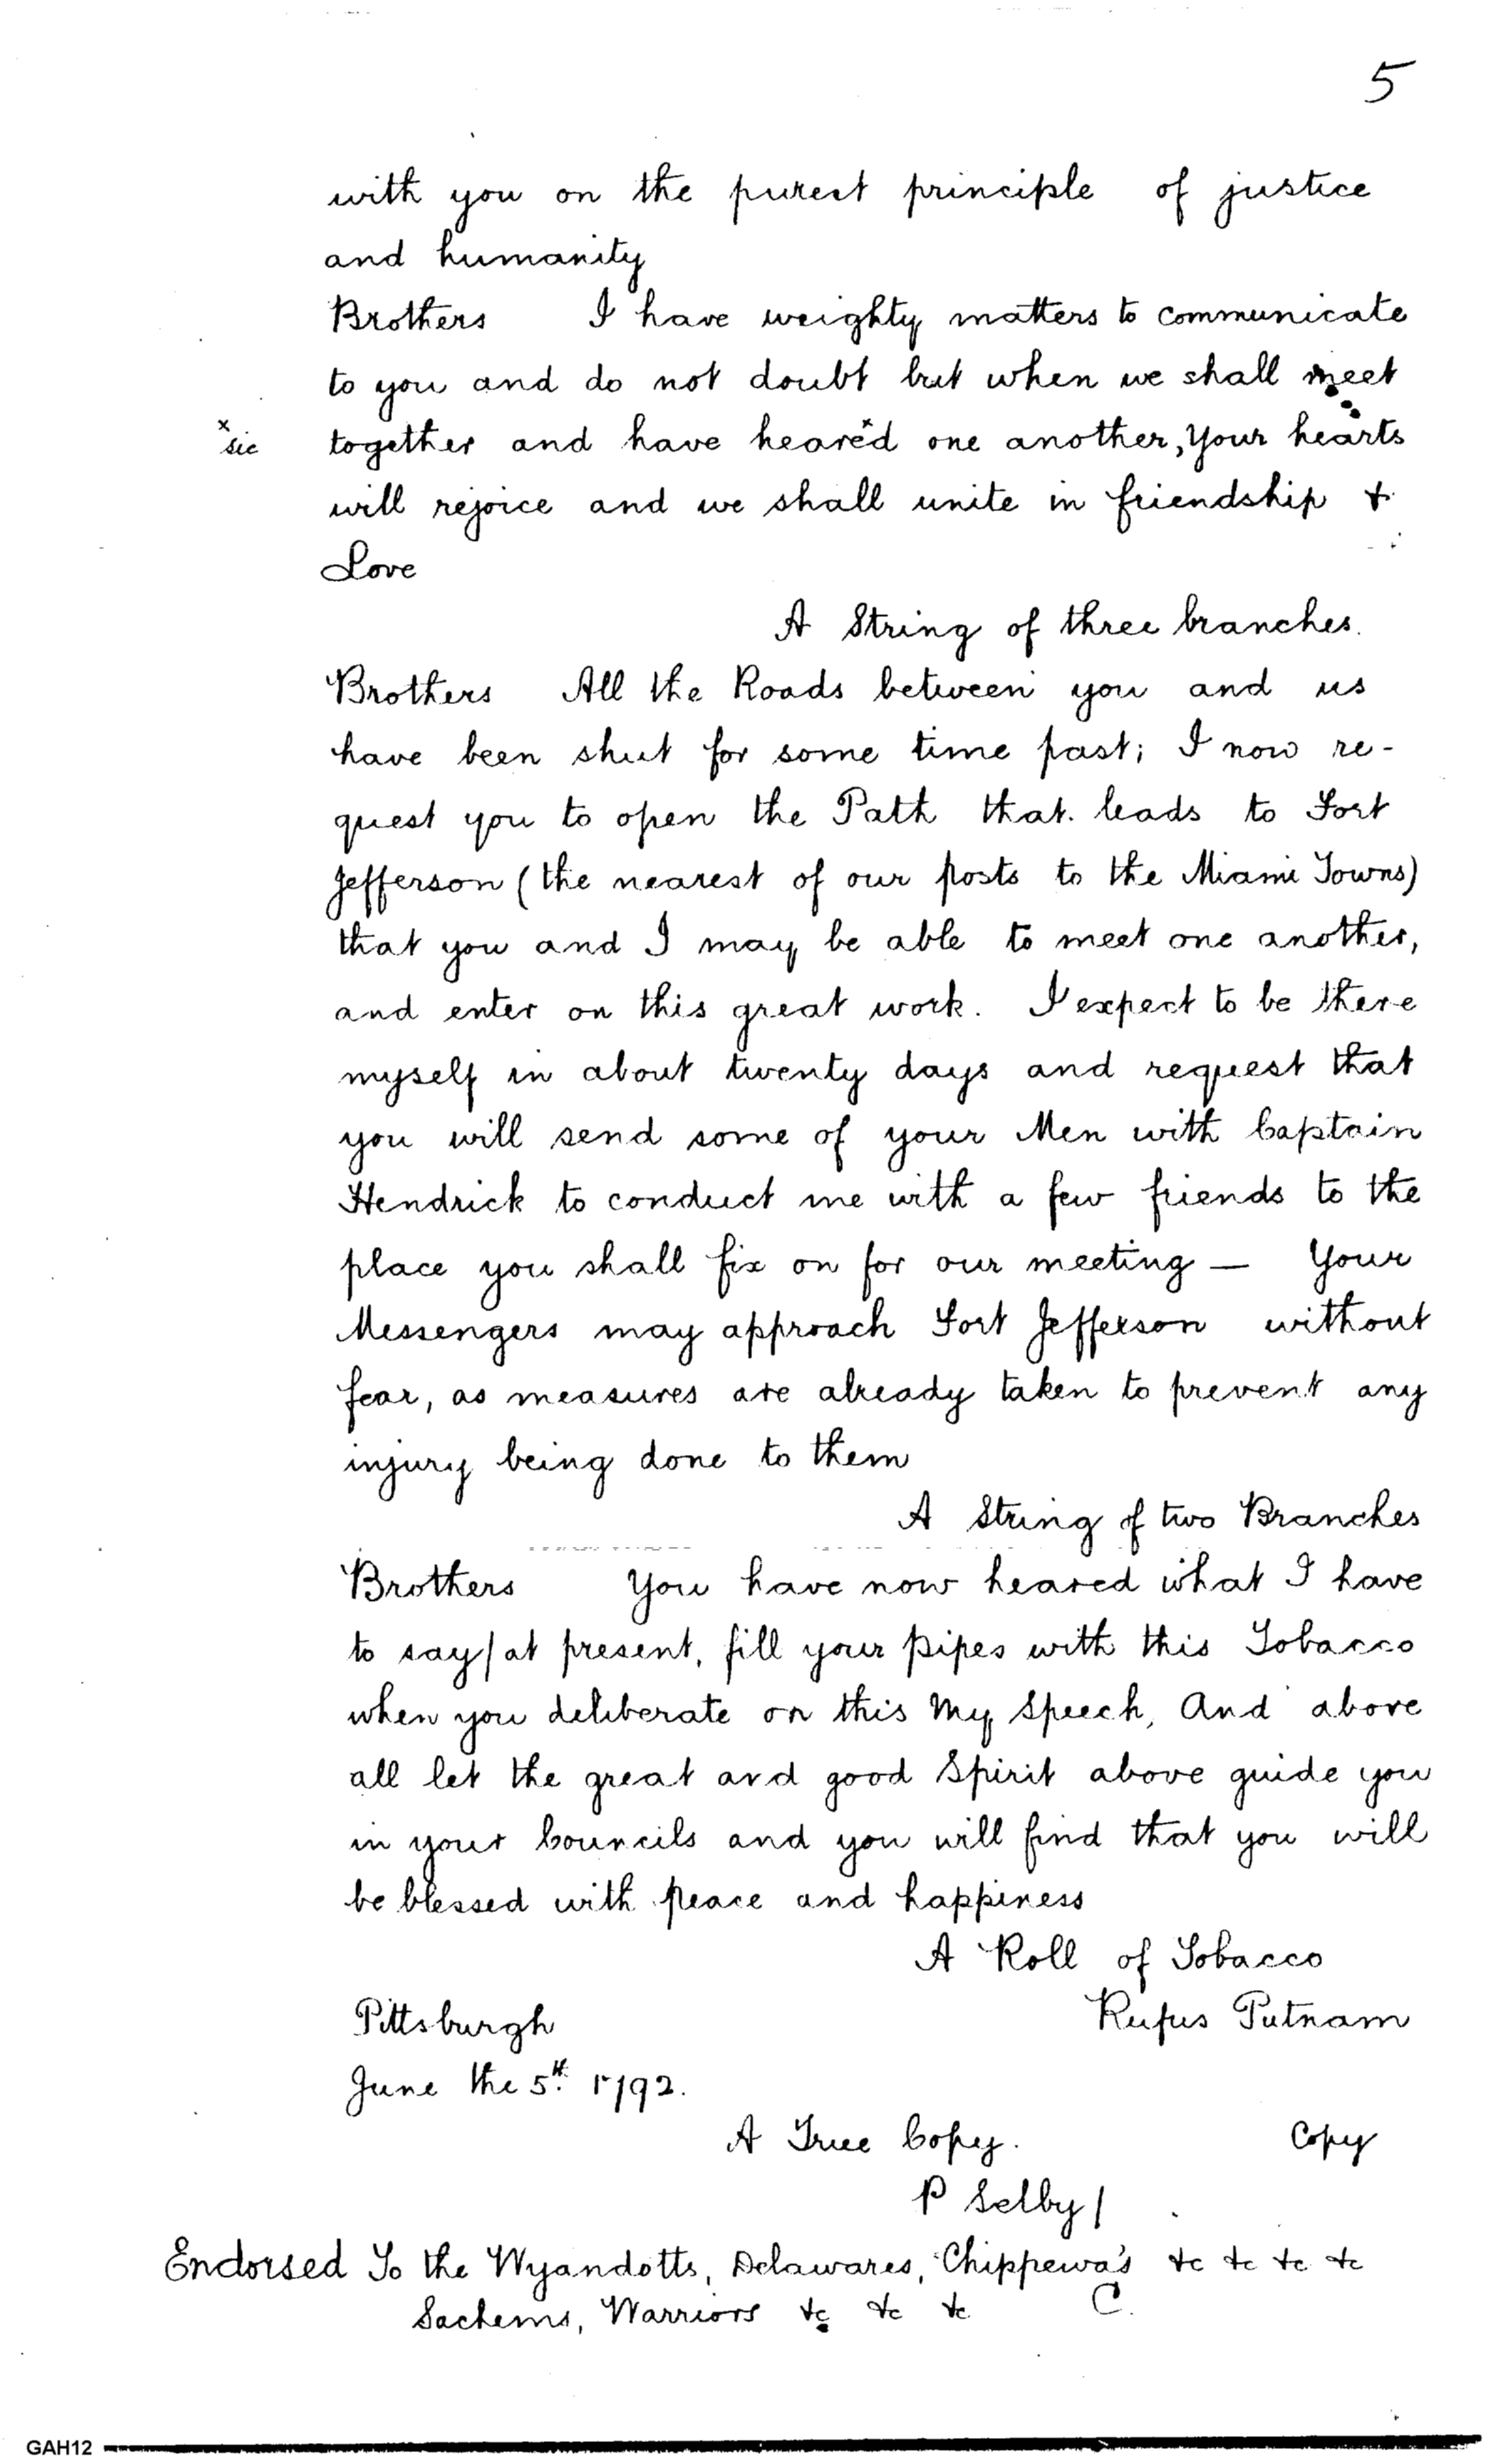 5
with you on the purest principle of justice
and humanity
Brothers I have weighty matters to communicate
to you and do not doubt but when we shall meet
x sic together and have heare'd x one another, Your hearts
will rejoice and we shall unite in friendship &
Love
A String of three branches.
Brothers All the Roads between you and us
have been shut for some time past; I now re-
quest you to open the Path that leads to Fort
Jefferson (the nearest of our posts to the Miami Towns)
that you and I may be able to meet one another,
and enter on this great work. I expect to be there
myself in about twenty days and request that
you will send some of your Men with Captain
Hendrick to conduct me with a few friends to the
place you shall fix on for our meeting — Your
Messengers may approach Fort Jefferson without
fear, as measures are already taken to prevent any
injury being done to them
A String of two Branches
Brothers You have now heared what I have
to say/at present, fill your pipes with this Tobacco
when you deliberate on this My Speech, And above
all let the great and good Spirit above guide you
in your Councils and you will find that you will
be blessed with peace and happiness
A Roll of Tobacco
Pittsburgh Rufus Putnam
June the 5th. 1792.
A True Copy. Copy
P Selby/
Endorsed To the Wyandotts, Delawares, Chippewa's &c &c &c &c
Sachems, Warriors &c &c &c C.
GAH12